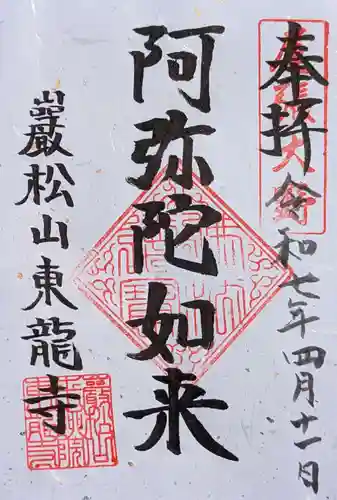 奉拝
尾張大野
令和七年四月十一日
阿弥陀如来
巖松山東龍寺